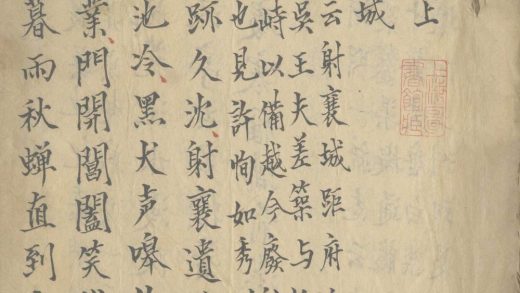 上
城
云射襄城距府
吳王夫差築与
峙以備越今廢
也見許恂如秀
跡久沈射襄遺
池冷黑犬声嘷
業門閉閶闔笑
暮雨秋蝉直到